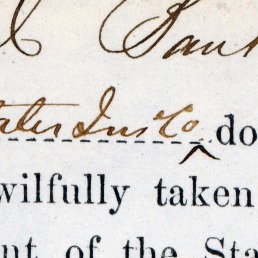 & Bank
ates Ins Co do
wilfully taken
nt of the Sta